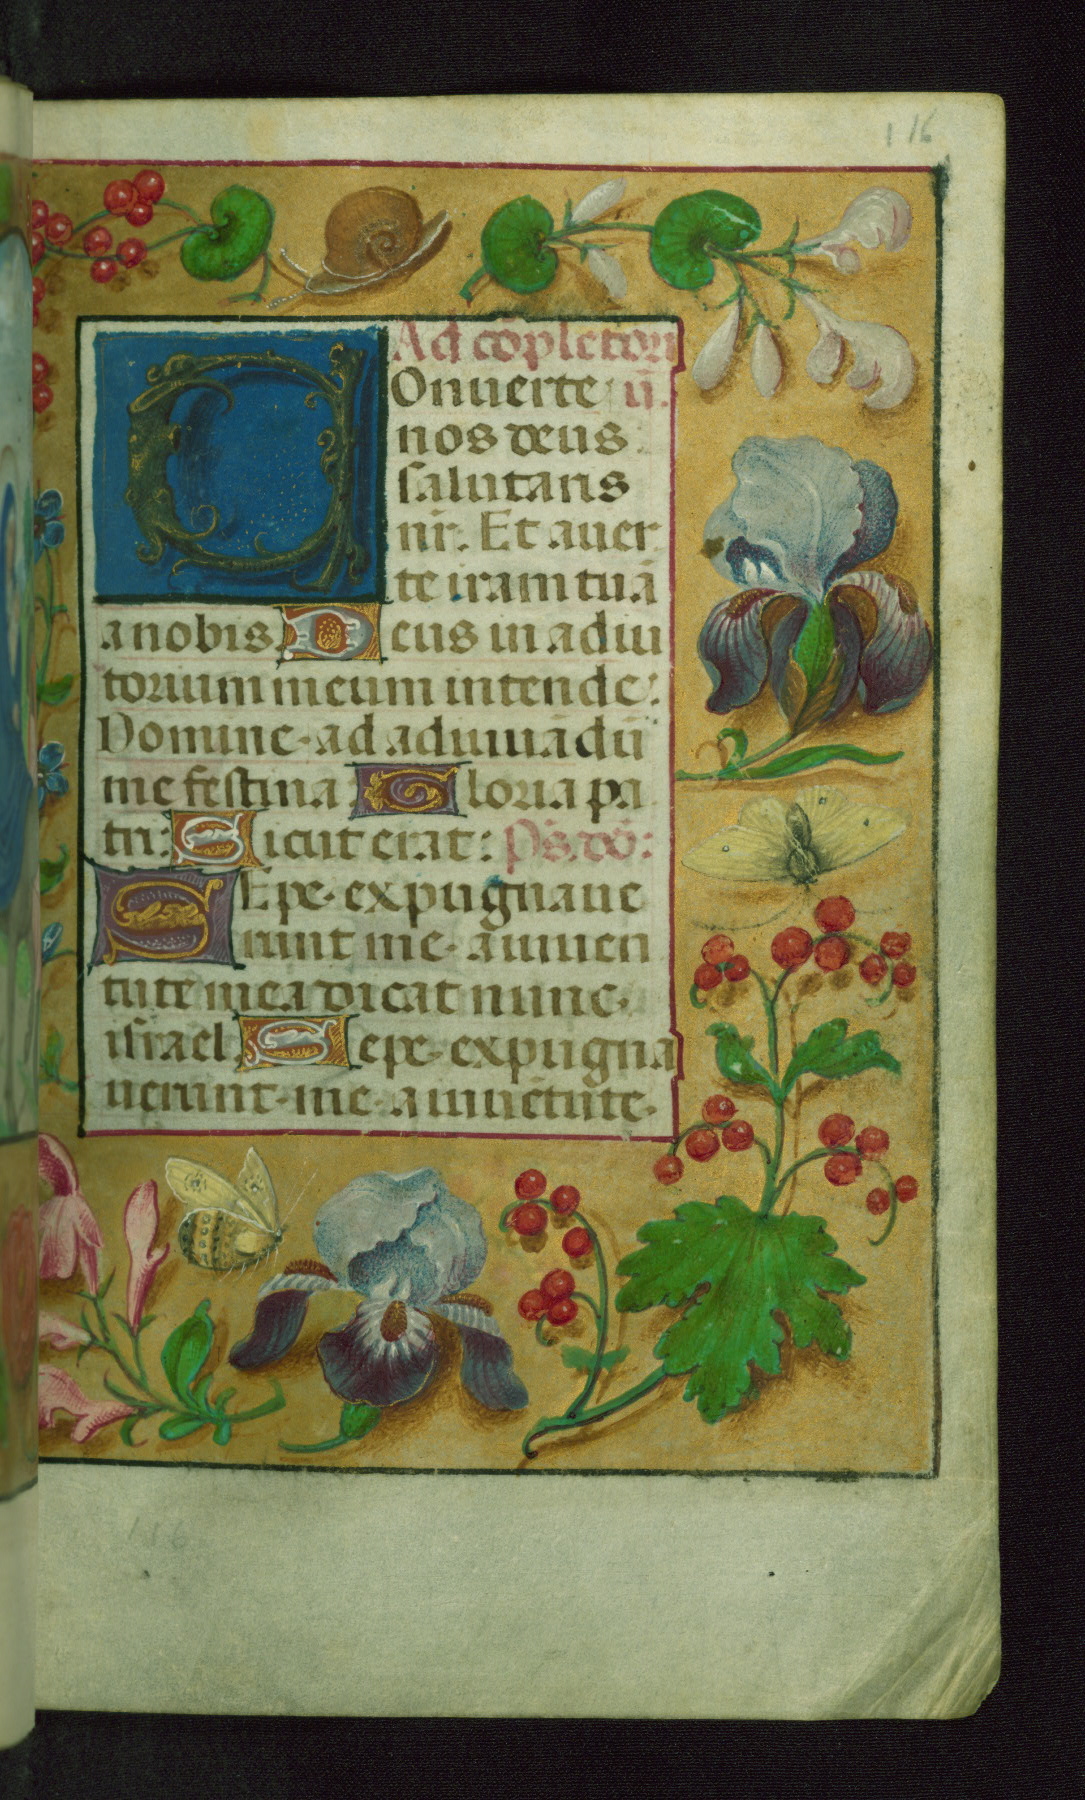 116
Ad cōpletori
Conuerte ū.
nos deus
salutaris
nr̄. Et auer
te iram tuā
a nobis. Deus in adiu
torium meum intende:
Domine ad adiuuādū
me festina Gloria pa
tri: Sicut erat: Ps. dō:
SEpe expugnaue
runt me a iuuen
tute mea dicat nunc
israel Sepe expugna
uerunt me a iuuētute.
116